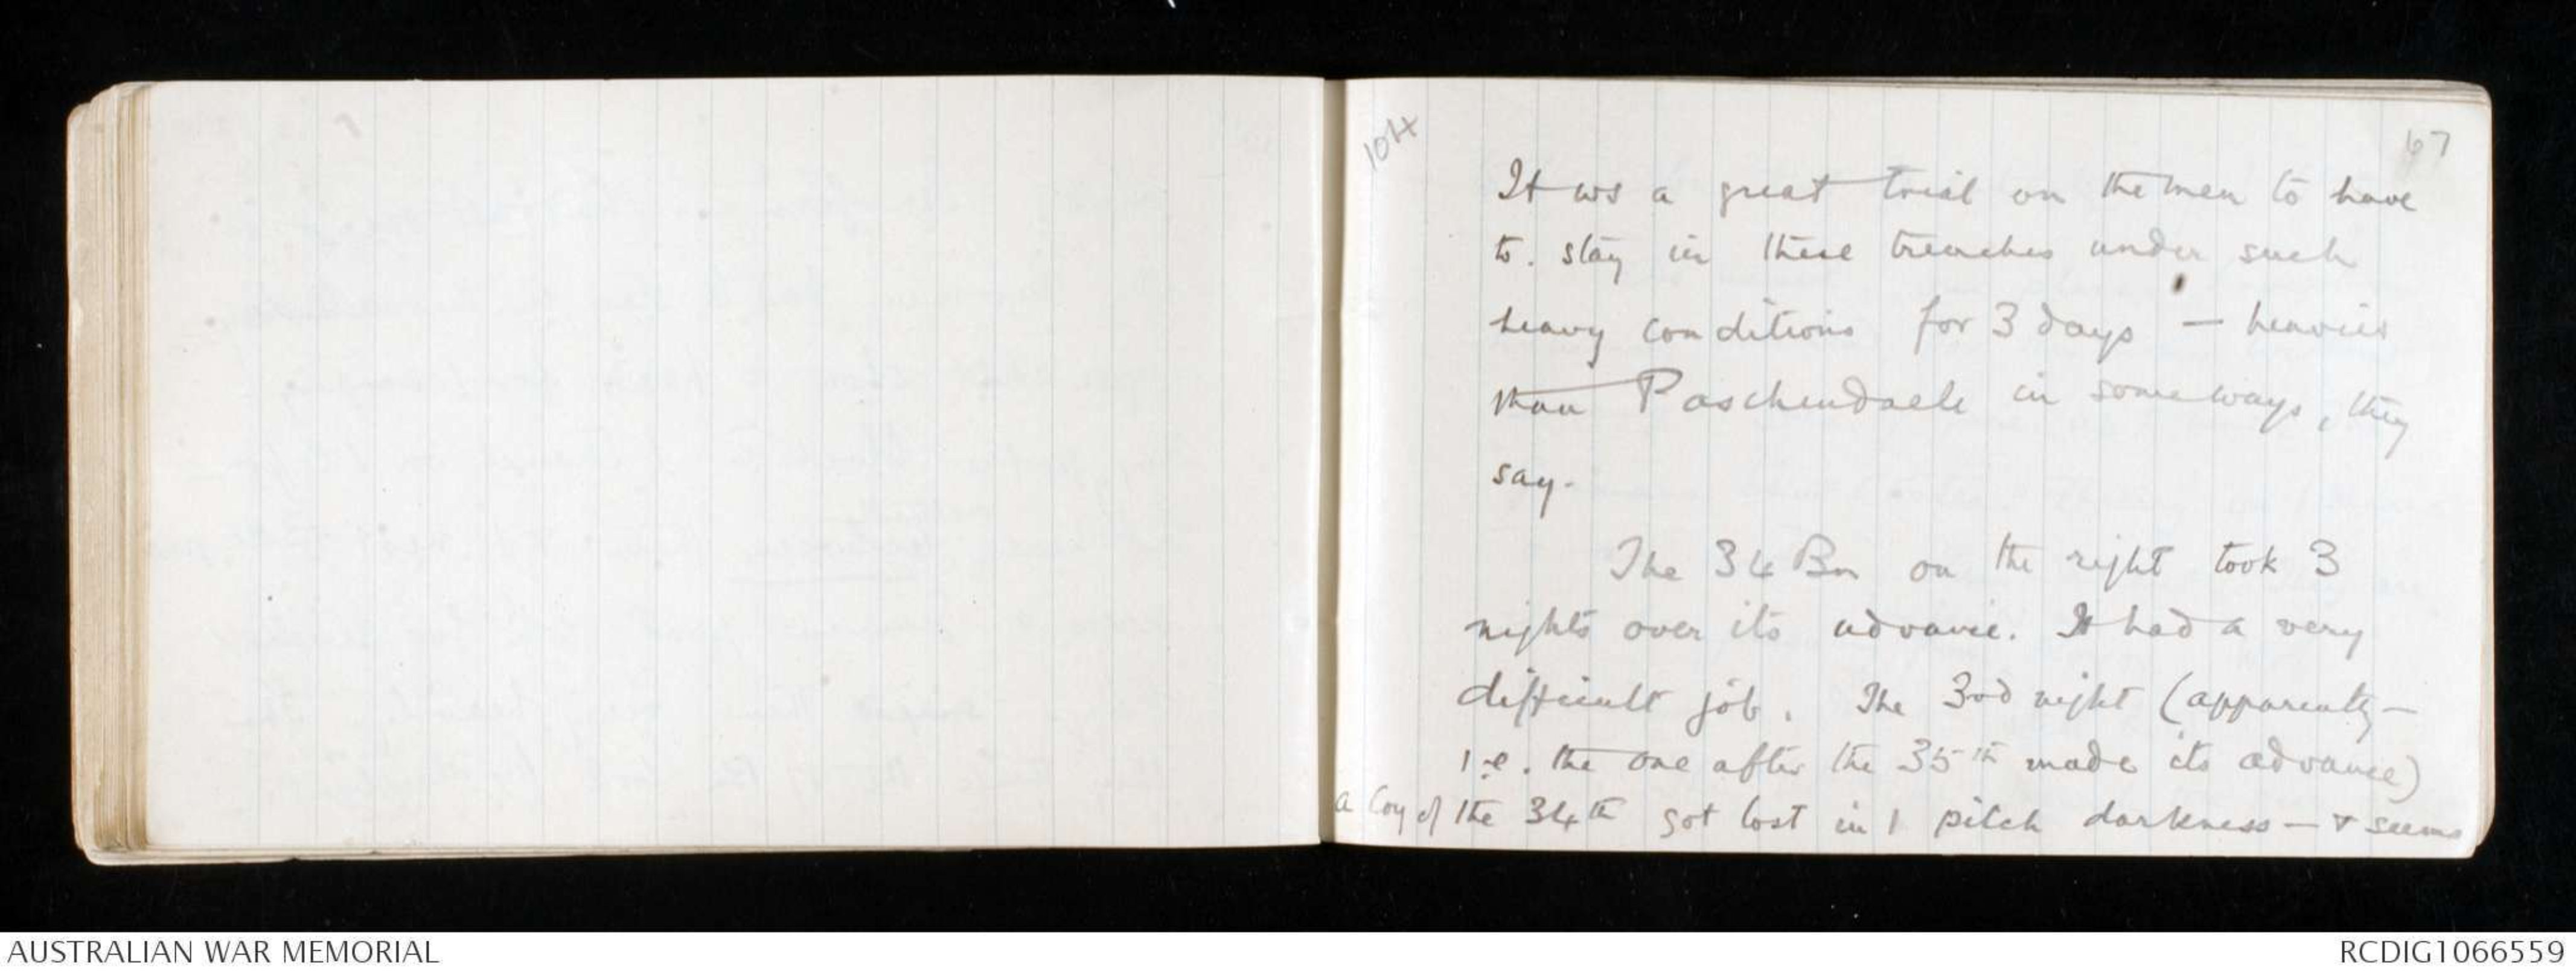 104
67
It ws a great trial on the men to have
to. stay in these trenches under such
heavy conditions for 3 days — heavier
than Paschendaele in some ways, they
say.
The 34 Bn on the right took 3
nights over its advance. It had a very
difficult job. The 3rd night (apparently —
i.e. the one after the 35th made its advance)
a Coy of the 34th got lost in / pitch darkness — & seems
AUSTRALIAN WAR MEMORIAL
RCDIG1066559